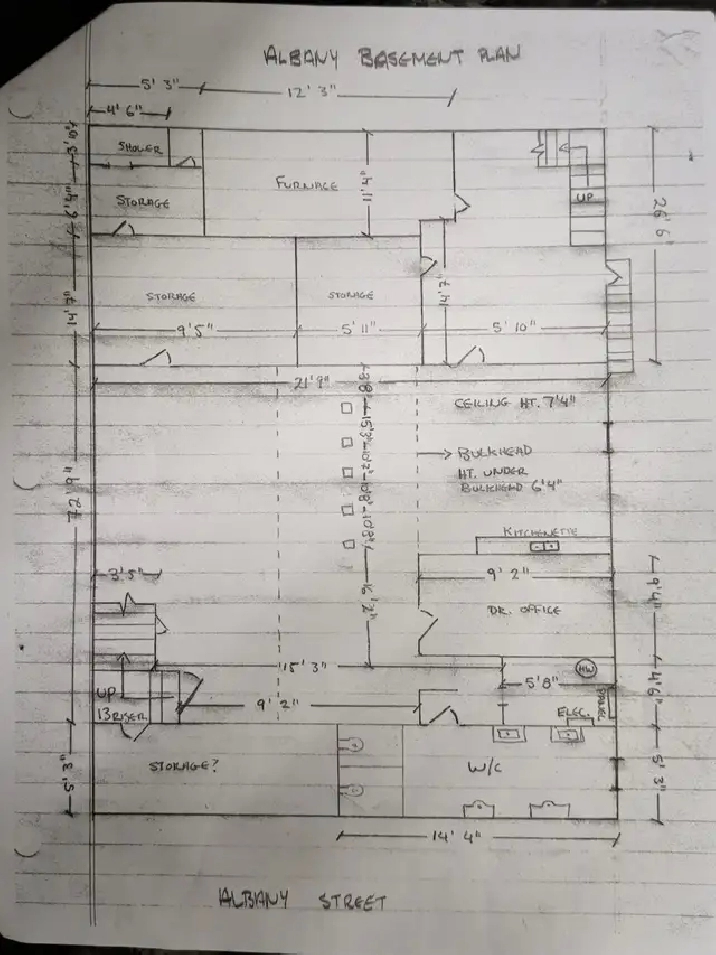 ALBANY BASEMENT PLAN
5' 3"
12' 3"
4' 6"
3' 10"
SHOWER
FURNACE
11' 4"
UP
26' 6"
6' 4"
STORAGE
14' 7"
STORAGE
STORAGE
9' 5"
5' 11"
5' 10"
21' 9"
CEILING HT. 7'4"
BULKHEAD
HT. UNDER
BULKHEAD 6'4"
72' 9"
KITCHENETTE
3' 5"
9' 2"
9' 4"
DR. OFFICE
16' 2"
15' 3"
HW
5' 8"
4' 6"
UP
13 RISER
9' 2"
ELEC.
PANEL
5' 8"
STORAGE?
W/C
5' 3"
14' 4"
ALBANY STREET